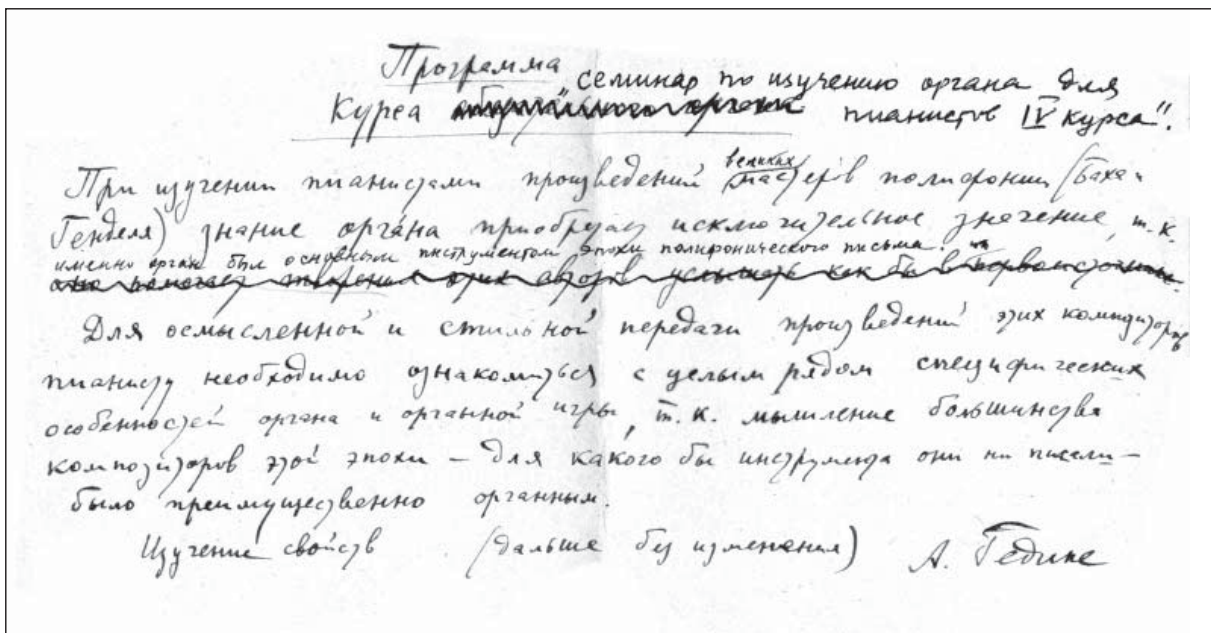 Программа
Курса "семинар по изучению органа для
пианистов IV курса".
При изучении пианистами произведений великих мастеров полифонии (Баха и
Генделя) знание органа приобретает исключительное значение, т.к.
именно орган был основным инструментом эпохи полифонического письма.
Для осмысленной и стильной передачи произведений этих композиторов
пианисту необходимо ознакомиться с целым рядом специфических
особенностей органа и органной игры, т.к. мышление большинства
композиторов этой эпохи – для какого бы инструмента они ни писали –
было преимущественно органным.
Изучение свойств (дальше без изменения) А. Гедике